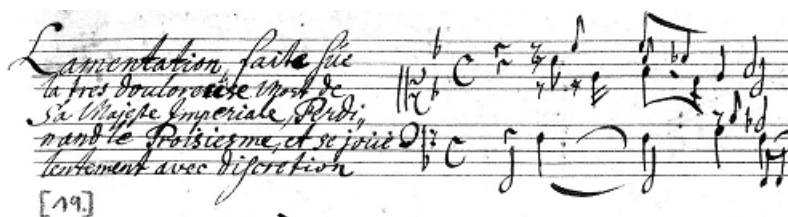 Lamentation, faite sur
la tres douloreuse Mort de
Sa Majeste Imperiale, Ferdi,,
nand le Troisiesme, et se joüe
lentement avec discretion
[19.]